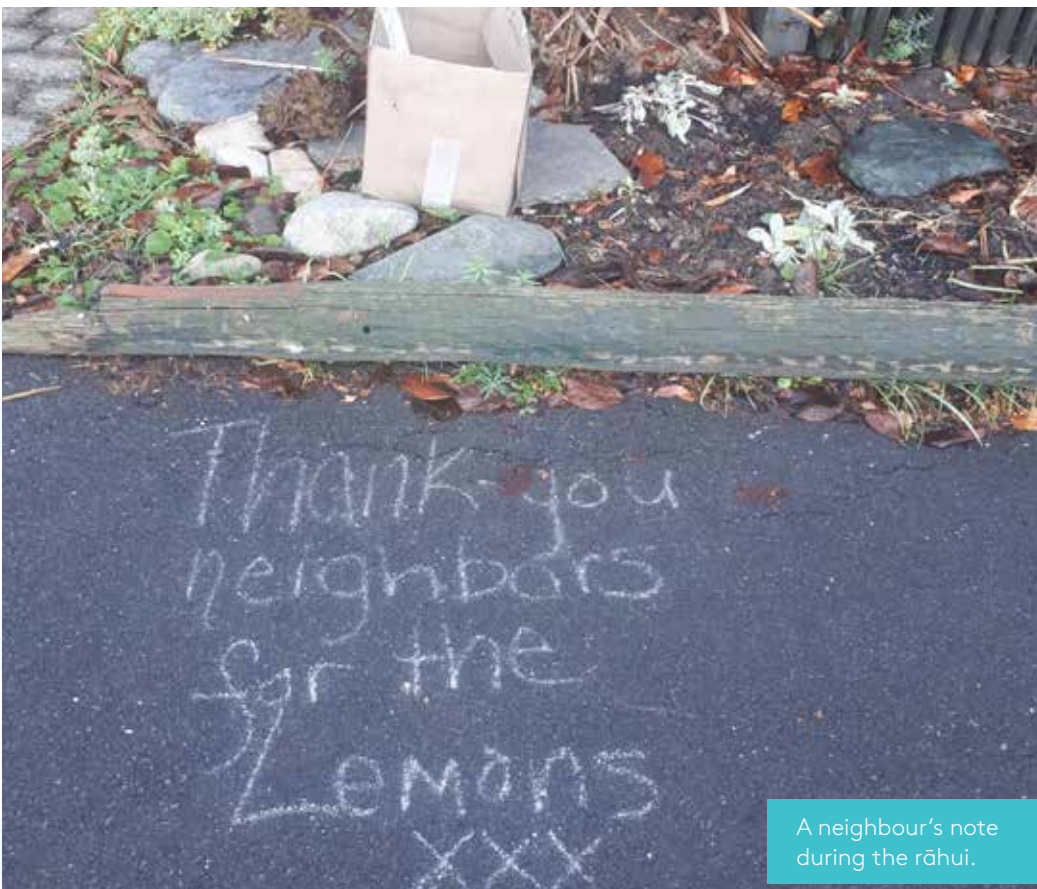 Thank you
neighbors
for the
Lemons
xxx
A neighbour's note
during the rāhui.